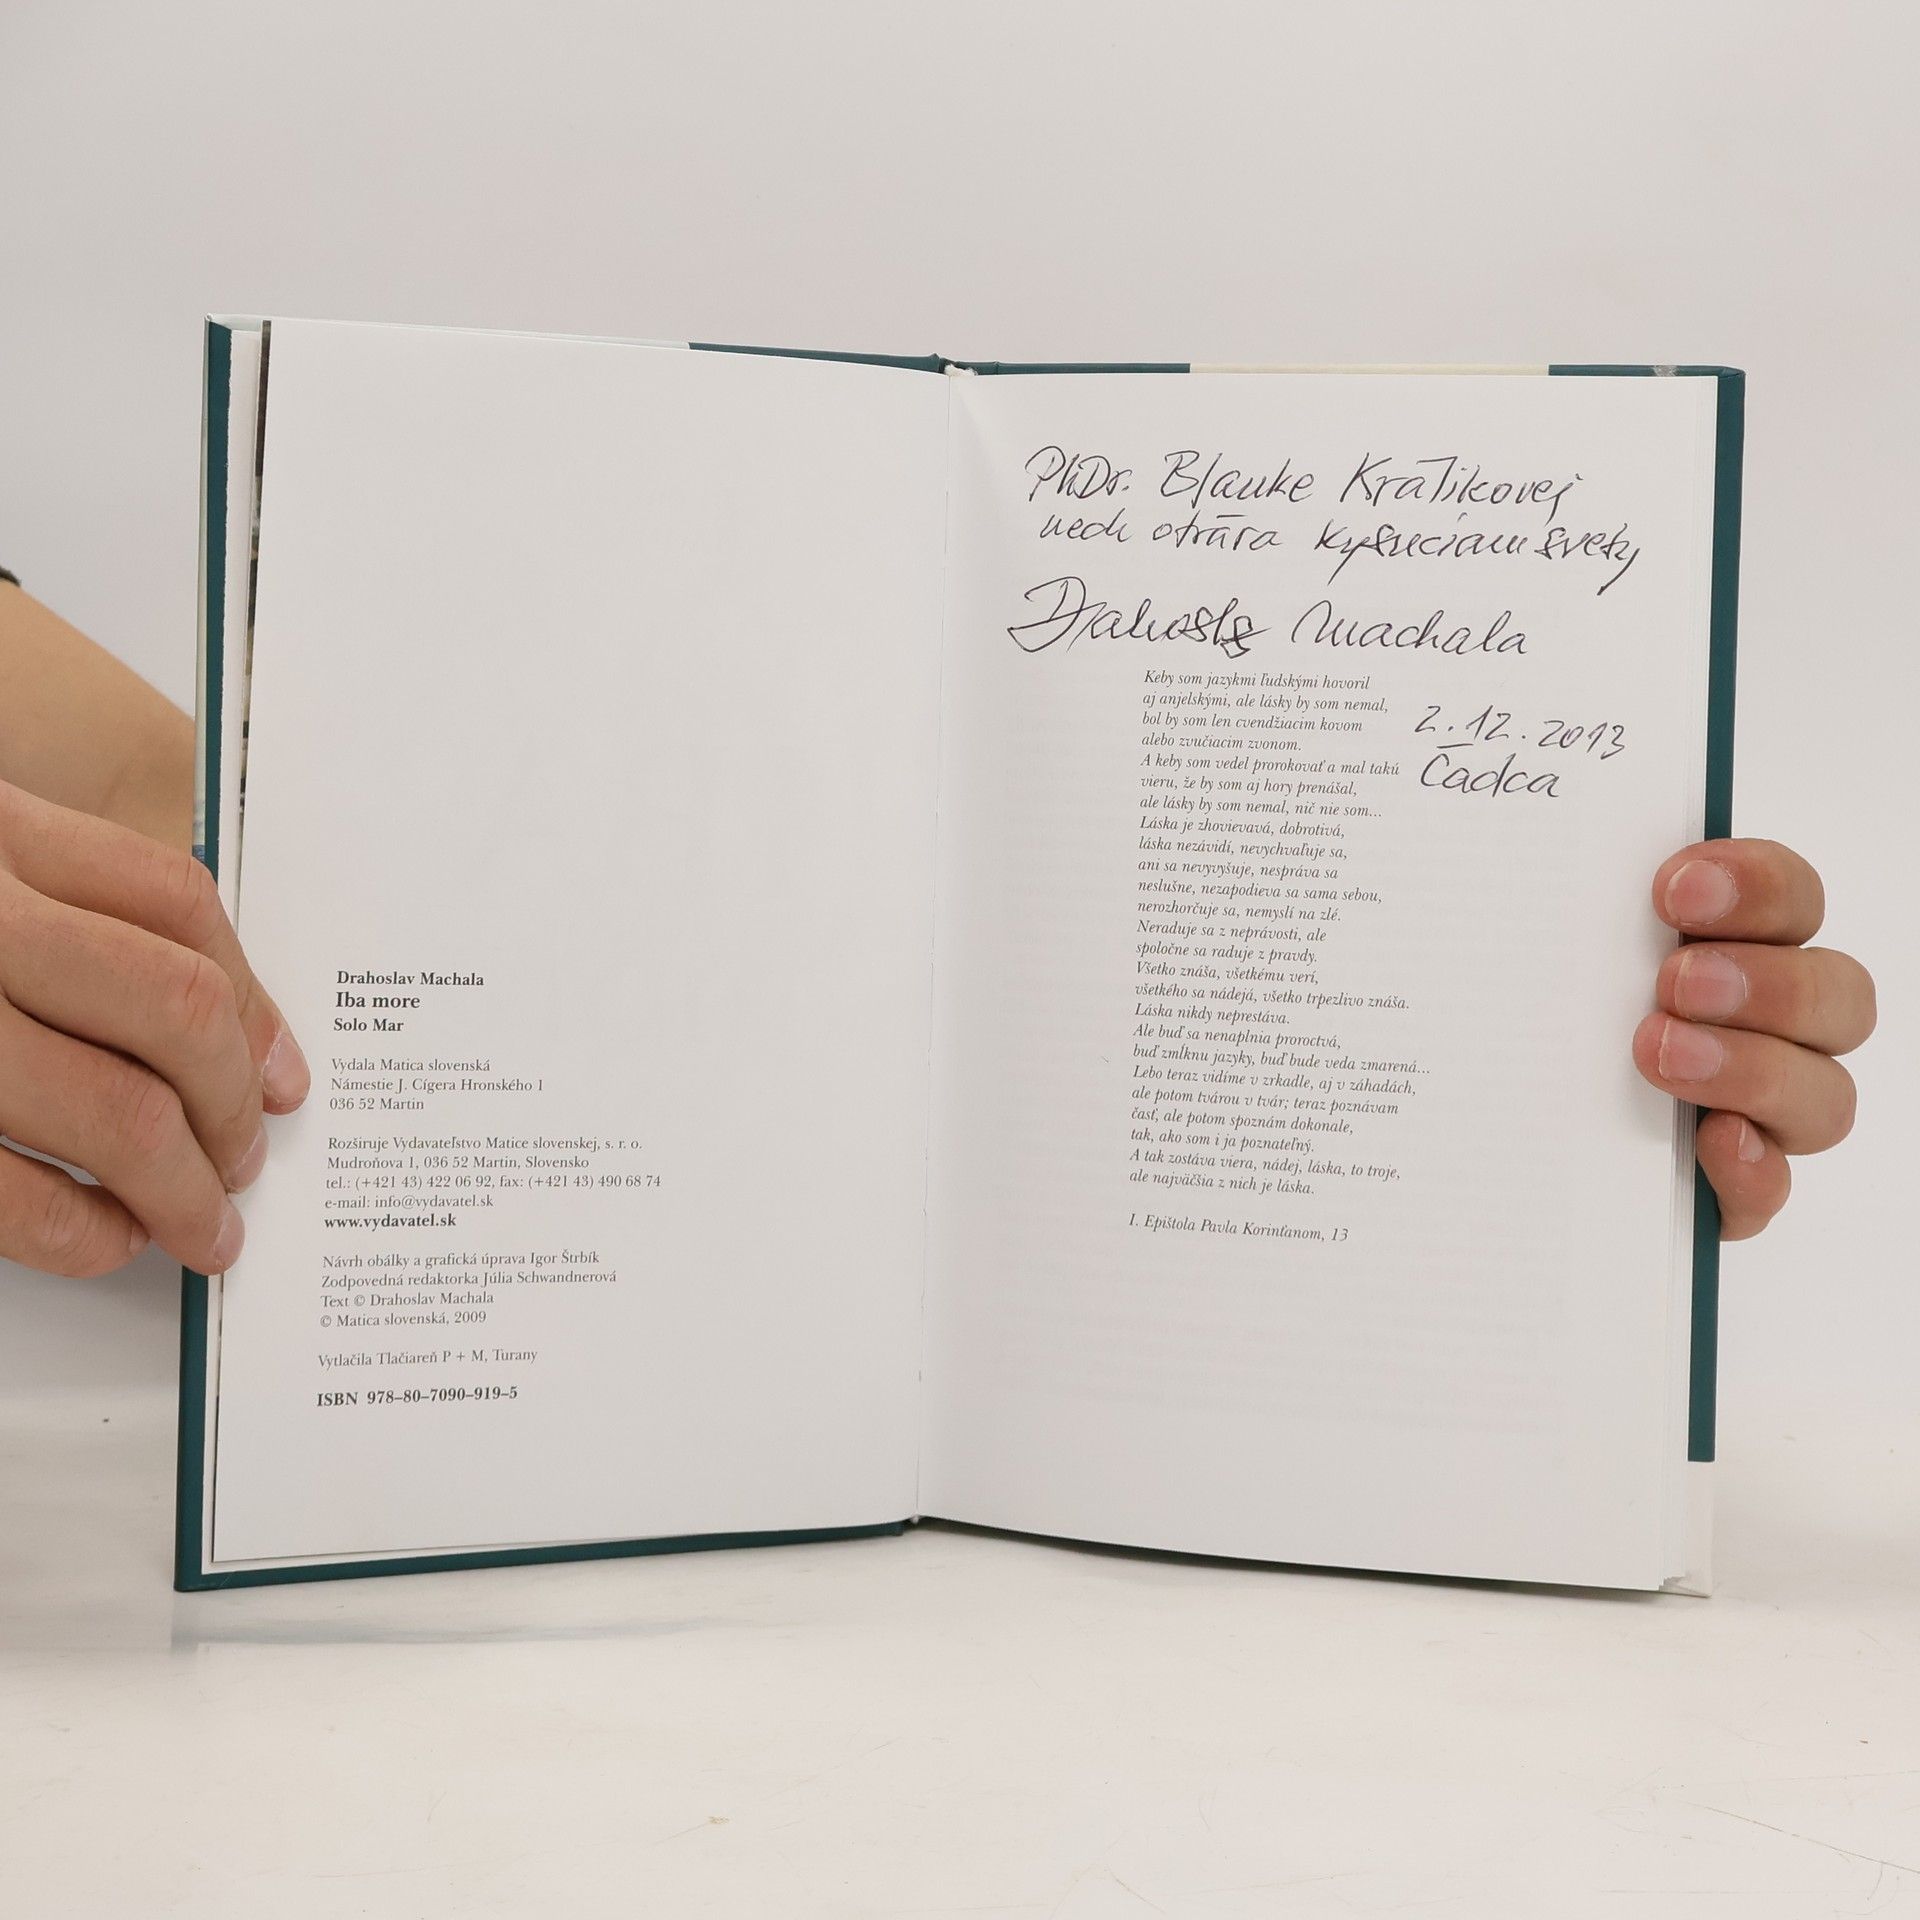 Drahoslav Machala
Iba more
Solo Mar
Vydala Matica slovenská
Námestie J. Cígera Hronského 1
036 52 Martin
Rozširuje Vydavateľstvo Matice slovenskej, s. r. o.
Mudroňova 1, 036 52 Martin, Slovensko
tel.: (+421 43) 422 06 92, fax: (+421 43) 490 68 74
e-mail: info@vydavatel.sk
www.vydavatel.sk
Návrh obálky a grafická úprava Igor Štrbík
Zodpovedná redaktorka Júlia Schwandnerová
Text © Drahoslav Machala
© Matica slovenská, 2009
Vytlačila Tlačiareň P + M, Turany
ISBN 978–80–7090–919–5
PhDr. Blanke Králikovej
nech otvára Kysučiam svety
Drahoslav Machala
2.12.2013
Čadca
Keby som jazykmi ľudskými hovoril
aj anjelskými, ale lásky by som nemal,
bol by som len cvendžiacim kovom
alebo zvučiacim zvonom.
A keby som vedel prorokovať a mal takú
vieru, že by som aj hory prenášal,
ale lásky by som nemal, nič nie som...
Láska je zhovievavá, dobrotivá,
láska nezávidí, nevychvaľuje sa,
ani sa nevyvyšuje, nespráva sa
neslušne, nezapodieva sa sama sebou,
nerozhorčuje sa, nemyslí na zlé.
Neraduje sa z neprávosti, ale
spoločne sa raduje z pravdy.
Všetko znáša, všetkému verí,
všetkého sa nádejá, všetko trpezlivo znáša.
Láska nikdy neprestáva.
Ale buď sa nenaplnia proroctvá,
buď zmĺknu jazyky, buď bude veda zmarená...
Lebo teraz vidíme v zrkadle, aj v záhadách,
ale potom tvárou v tvár; teraz poznávam
časť, ale potom spoznám dokonale,
tak, ako som i ja poznateľný.
A tak zostáva viera, nádej, láska, to troje,
ale najväčšia z nich je láska.
I. Epištola Pavla Korinťanom, 13